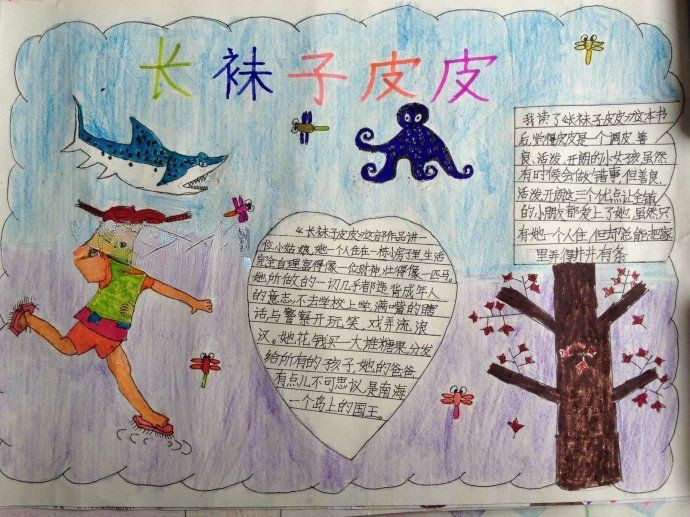 长袜子皮皮
我读了《长袜子皮皮》这本书
后,觉得皮皮是一个调皮、善
良、活泼、开朗的小女孩,虽然
有时候会做错事,但善良、
活泼、开朗这三个优点,让全镇
的小朋友都爱上了她,虽然只
有她一个人住,但却总能把家
里弄得井井有条
《长袜子皮皮》这部作品讲一
位小姑娘,她一个人住在一栋小房子里,生活
完全自理,富得像一位财神,壮得像一匹马。
她所做的一切几乎都违背成年人
的意志,不去学校上学,满嘴的瞎
话与警察开玩笑、戏弄流浪
汉。她花钱买一大堆糖果,分发
给所有的孩子,她的爸爸
有点儿不可思议,是南海
一个岛上的国王。